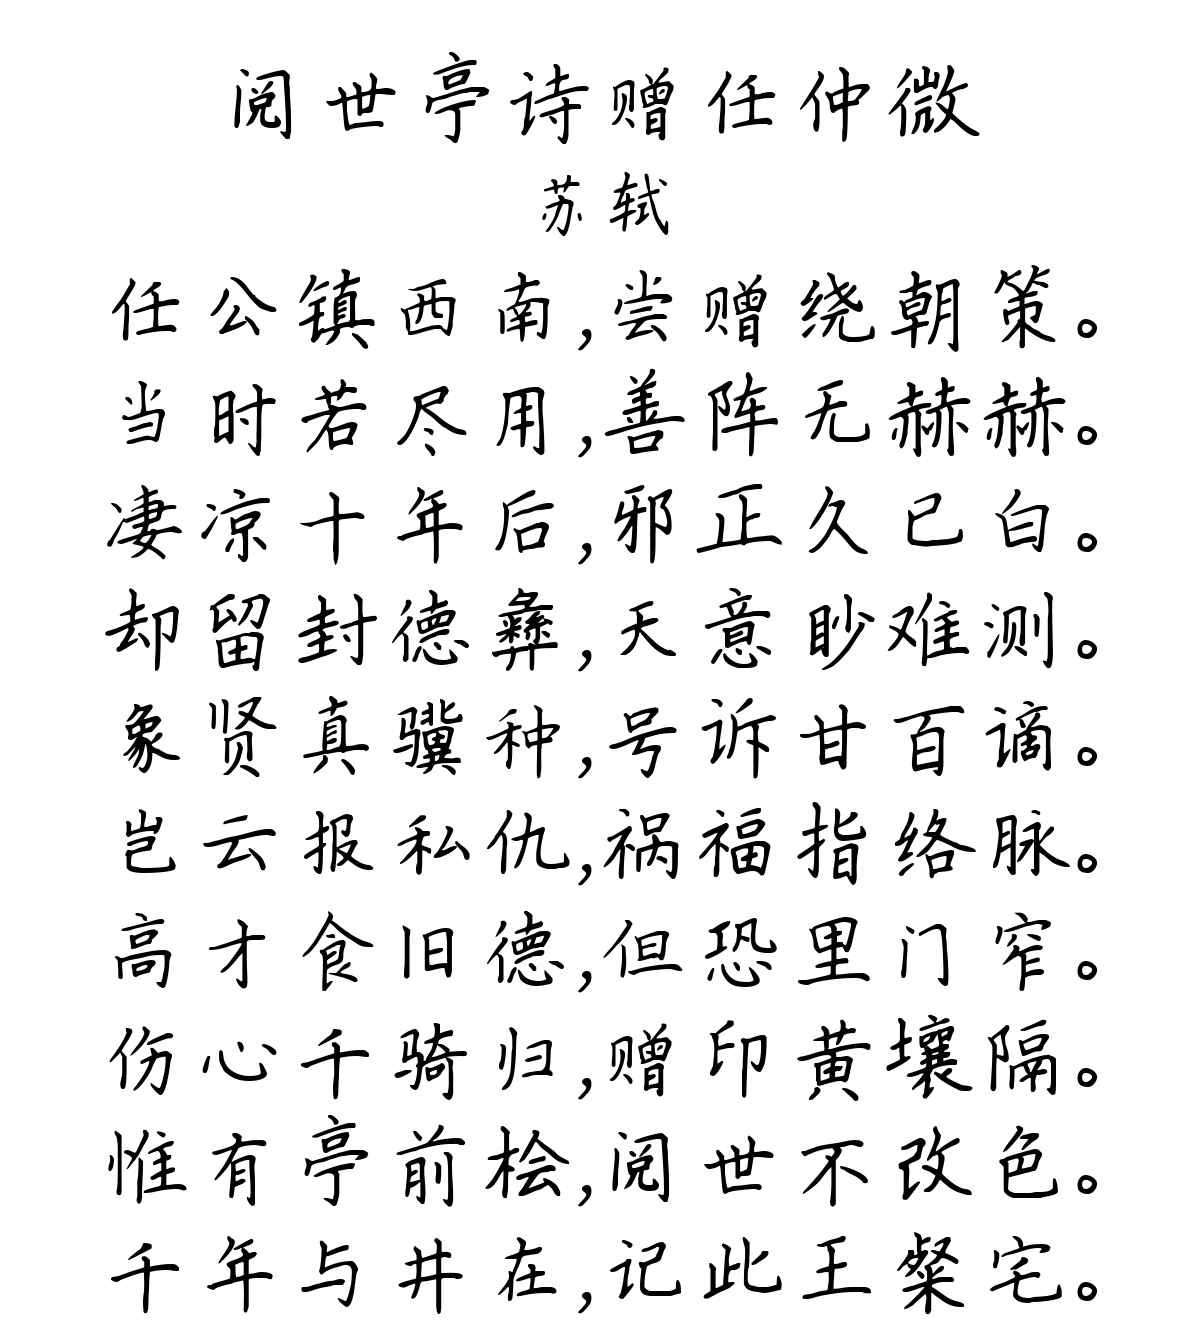 阅世亭诗赠任仲微
苏轼
任公镇西南,尝赠绕朝策。
当时若尽用,善阵无赫赫。
凄凉十年后,邪正久已白。
却留封德彝,天意眇难测。
象贤真骥种,号诉甘百谪。
岂云报私仇,祸福指络脉。
高才食旧德,但恐里门窄。
伤心千骑归,赠印黄壤隔。
惟有亭前桧,阅世不改色。
千年与井在,记此王粲宅。